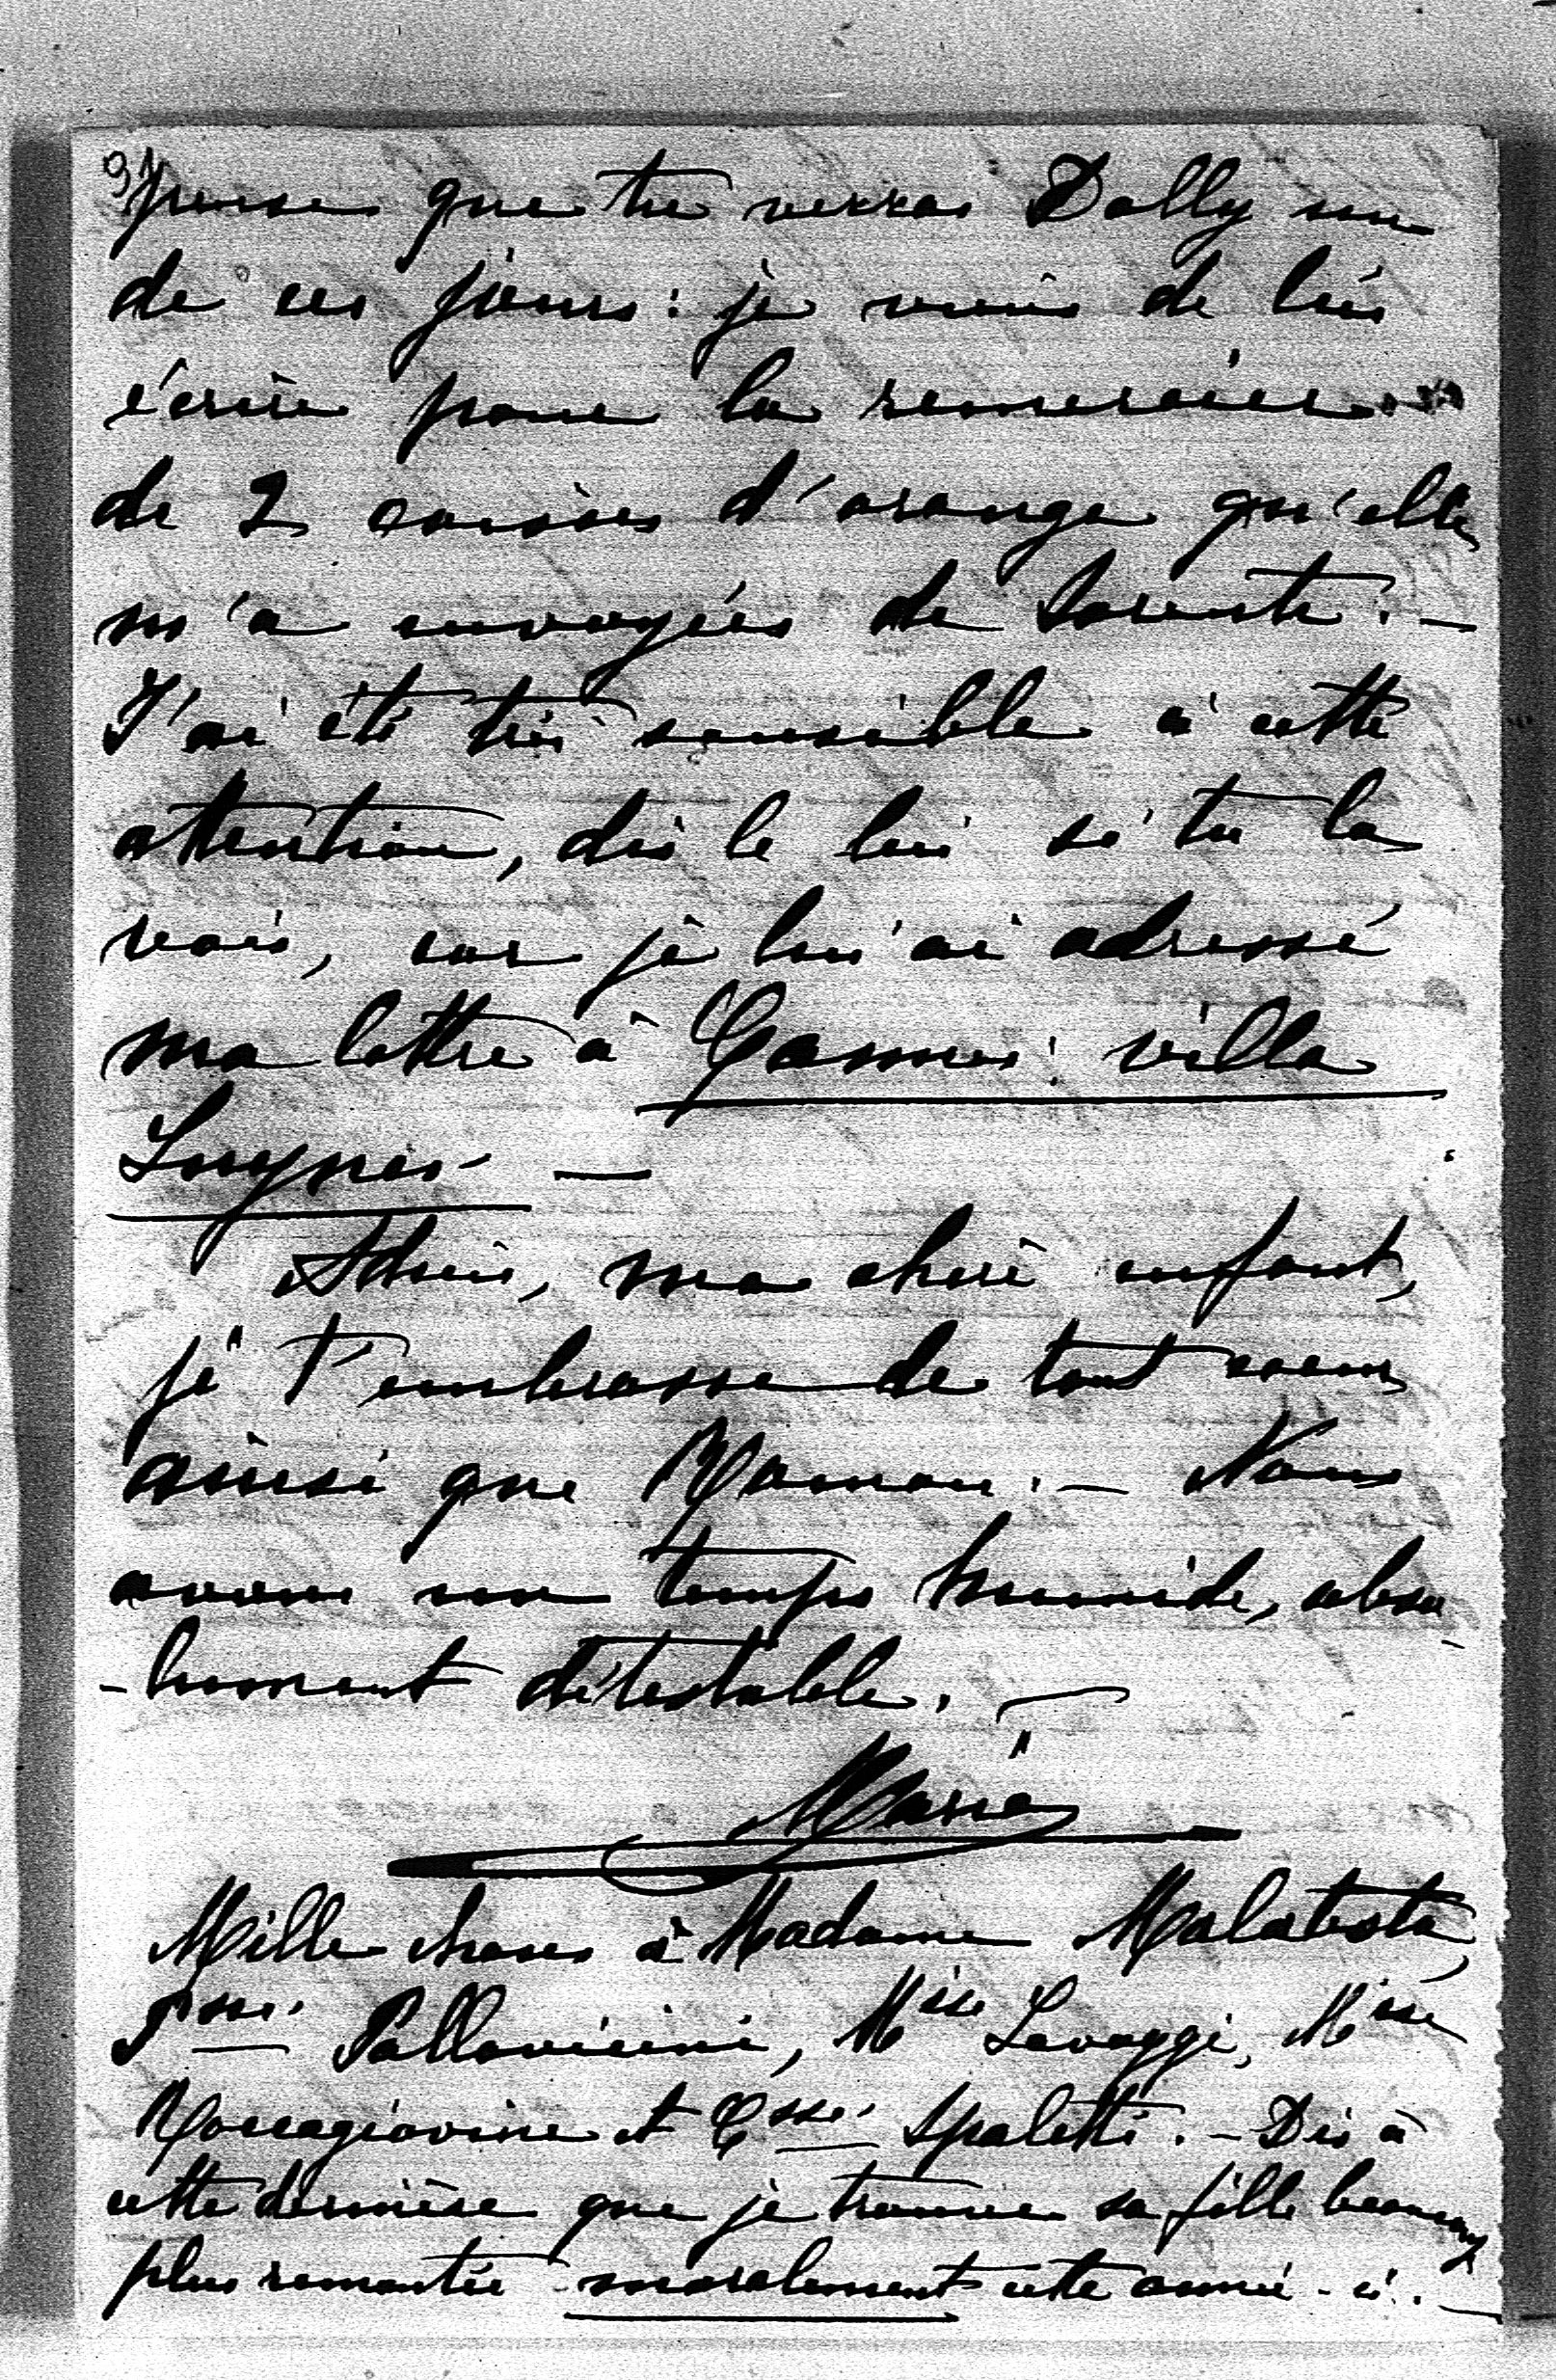 9/ pense que tu verras Dolly un
de ces jours : je viens de lui
écrire pour la remercier
de 2 caisses d'orange qu'elle
m'a envoyées de Sorente. —
J'ai été très sensible à cette
attention, dis le lui si tu la
vois, car je lui ai adressé
ma lettre à Cannes : villa
Luynes —
Adieu, ma chère enfant,
je t'embrasse de tout coeur
ainsi que Maman. — Nous
avons un temps humide, abso
-lument détestable. —
Marie
Mille choses à Madame Malatesta,
Psse. Pallavicini, Mise Lavaggi, Mise
Roccagiovine et Csse. Spaletti. — Dis à
cette dernière que je trouve sa fille beaucoup
plus remontée moralement cette année-ci. —